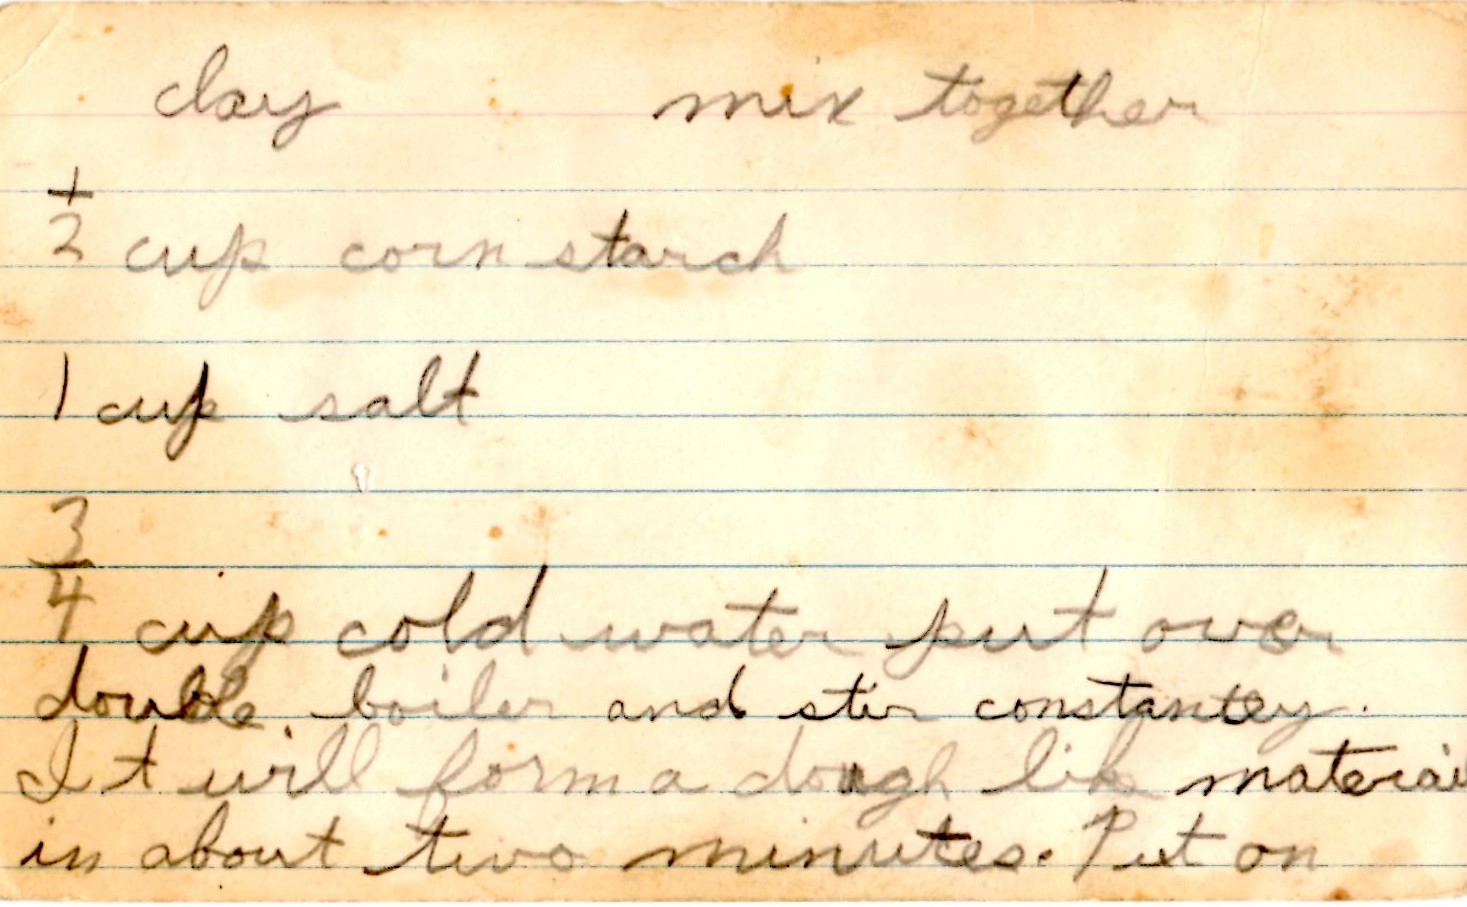 clay mix together
1/2 cup corn starch
1 cup salt
3/4 cup cold water put over
double boiler and stir constantey.
It will form a dough like material
in about two minutes. Put on